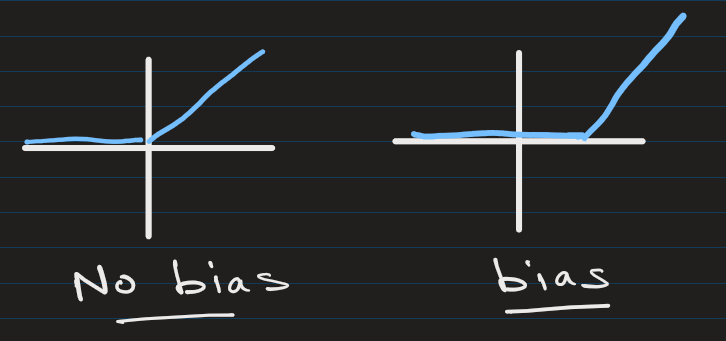 No bias
bias